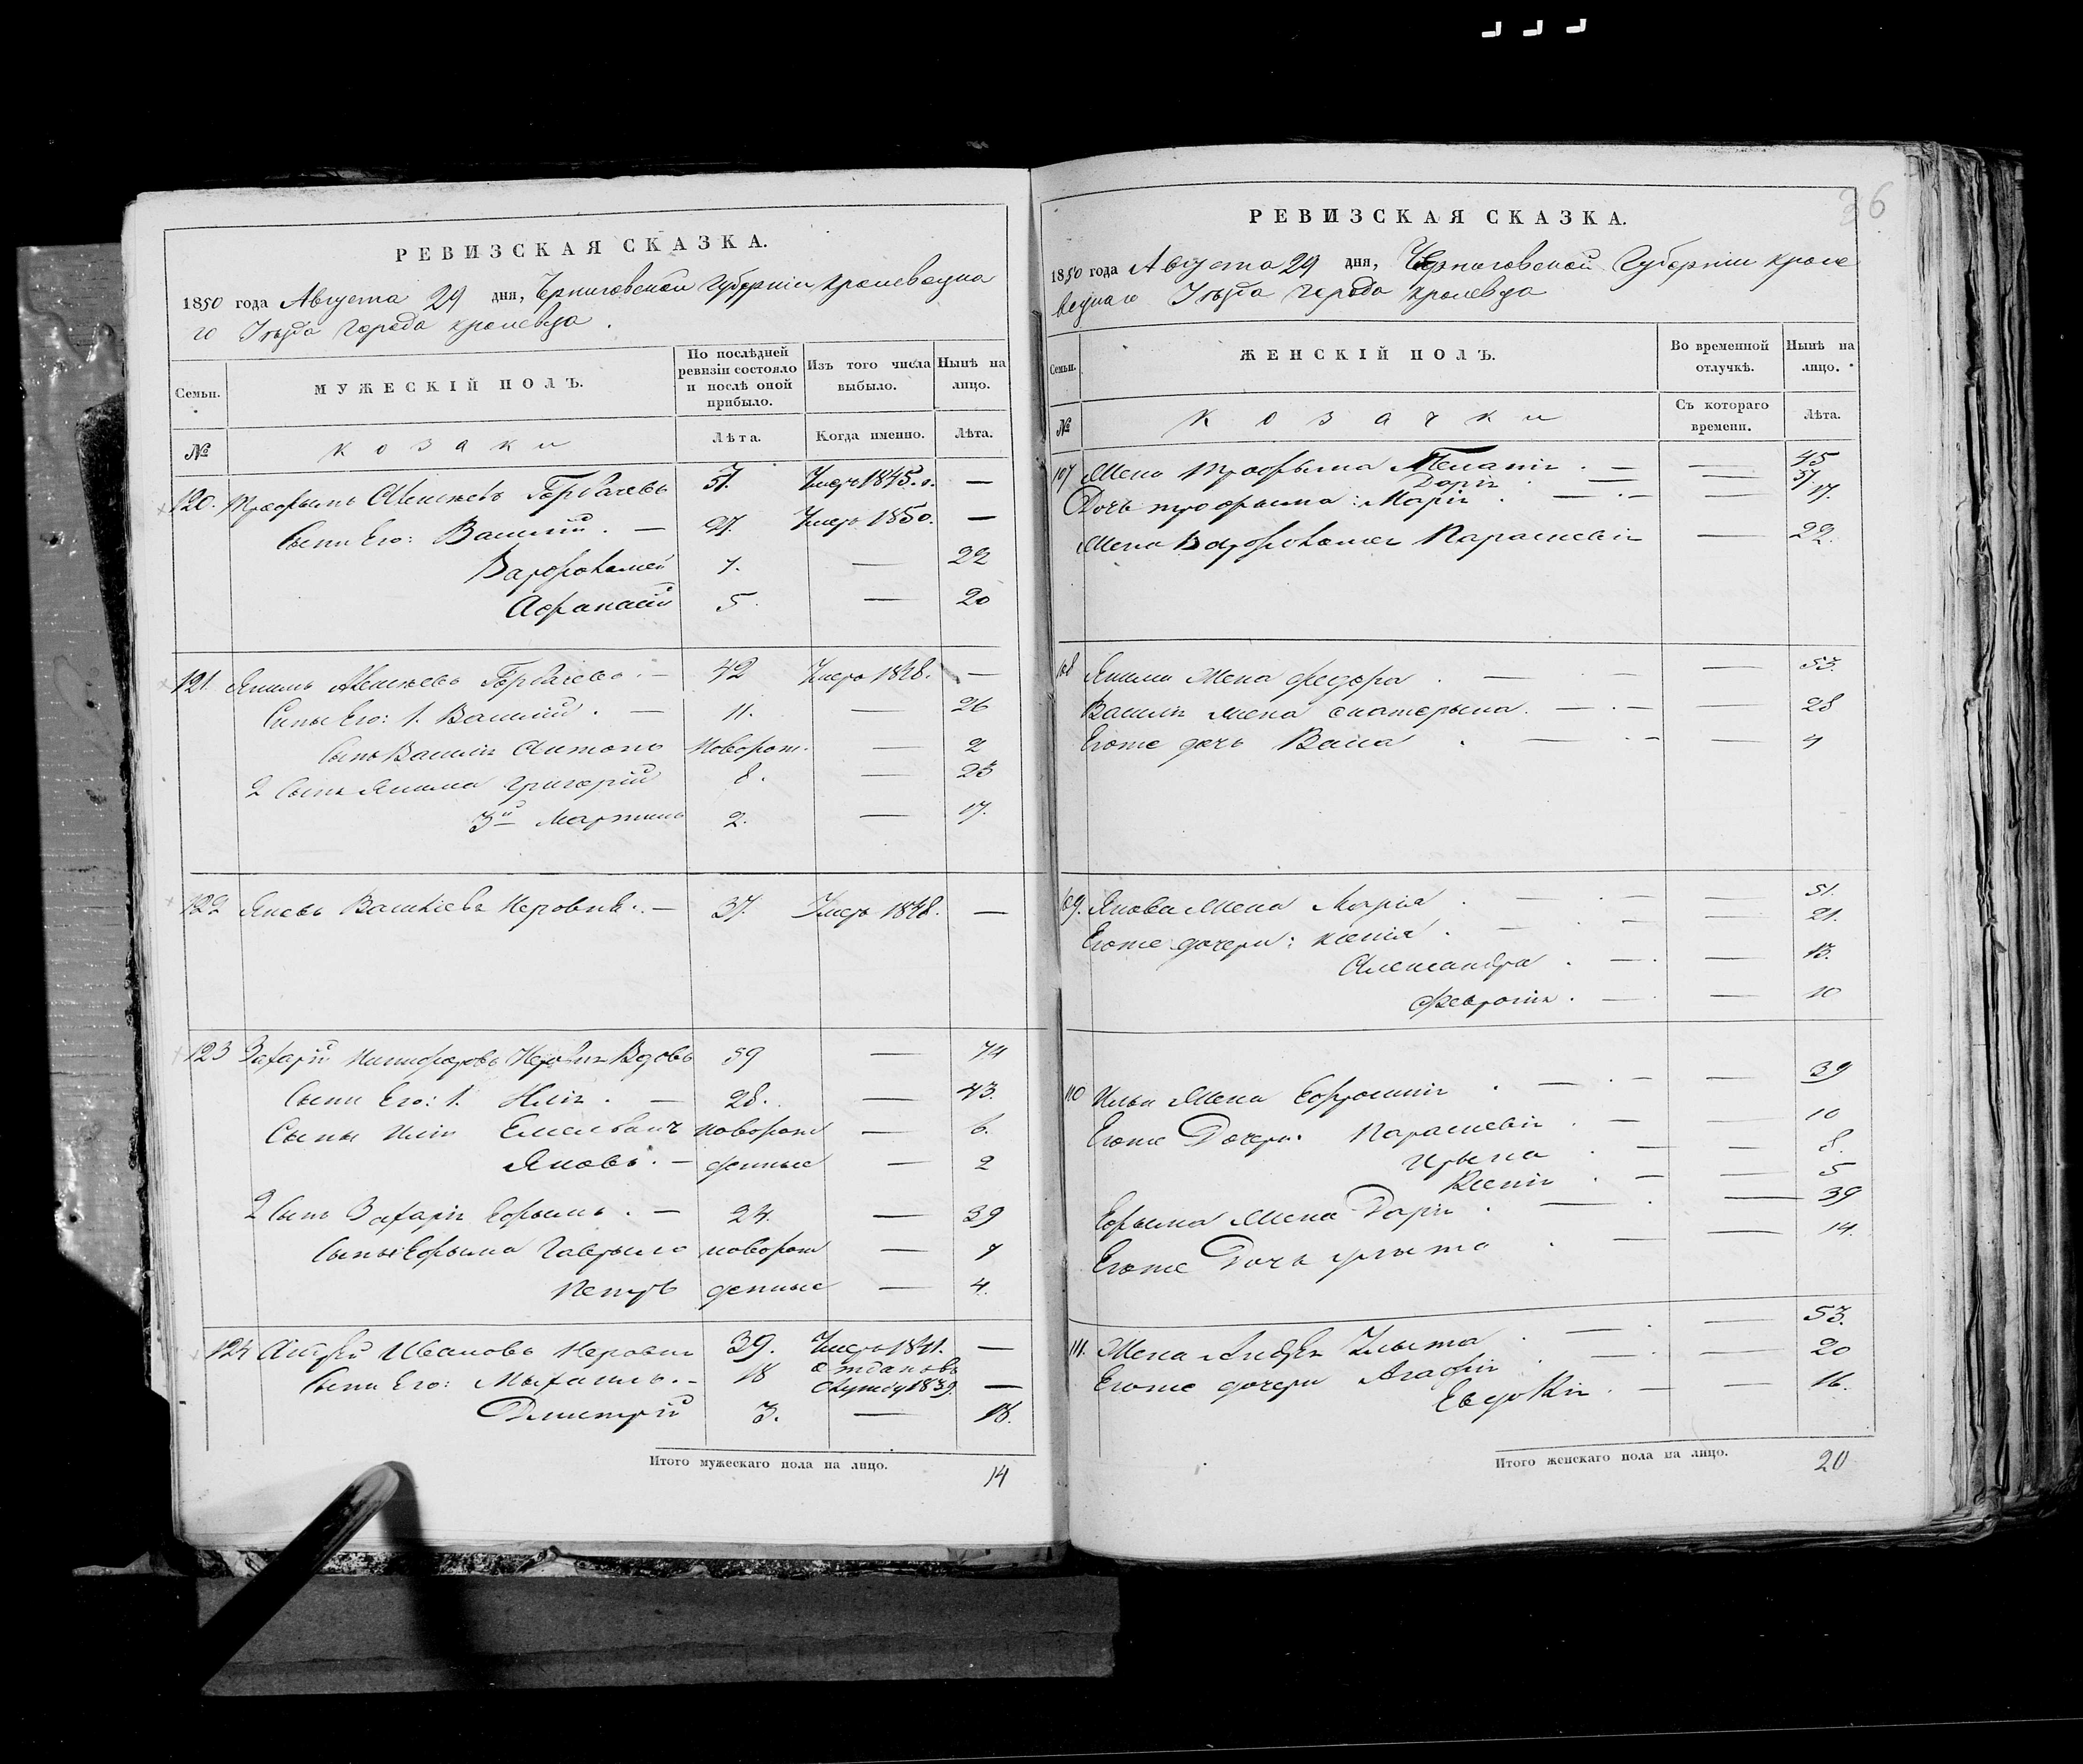 РЕВИЗСКАЯ СКАЗКА.
1850 года Августа 29 дня, Черниговской Губерніи кролевецка
го Уѣзда города кролевца.
Семьи.
МУЖЕСКІЙ ПОЛЪ.
По послѣдней ревизіи состояло и послѣ оной прибыло.
Изъ того числа выбыло.
Нынѣ на лицо.
№
козаки
Лѣта.
Когда именно.
Лѣта.
120. Трофымъ Горбачевъ 51. Умеръ 1845. —
Сыни Его: Василій. — 27. Умеръ 1850. —
Варфоломей 7. — 22
Афанасій 5. — 20
121. Якимъ Горбачевъ. — 42 Умеръ 1848. —
Сыны Его: 1. Василій. — 11. — 26
Сынъ Василія Антонъ Новорож. — 2
2 Сынъ Якима Григорій 8. — 23
3й Мартинъ 2. — 17.
122 Яковъ Неровня. — 37. Умеръ 1848. —
123 Захарій Никифоровъ Вдовъ 59 — 74
Сыни Его: 1. Илія. — 28. — 43.
Сыны Иліи новорож — 6.
Яковъ. — денные — 2
2 Сынъ Захарія Ефымъ. — 24. — 39
Сыны Ефыма Гаврыло новорож — 7
Петръ денные — 4.
124 Андрей Ивановъ 39. Умеръ 1841. —
Сыни Его: Мыхаилъ. — 18 1839. —
Дмитрій 3. — 18.
Итого мужескаго пола на лицо. 14
36
РЕВИЗСКАЯ СКАЗКА.
1850 года Августа 29 дня, Черниговской Губерніи кроле
вецкаго Уѣзда города кролевца
Семьи.
ЖЕНСКІЙ ПОЛЪ.
Во временной отлучкѣ.
Нынѣ на лицо.
№
козачки
Съ котораго времени.
Лѣта.
107 Жена трофыма Меланія. — — 45
Дарія. — — 37.
Дочь трофыма: Марія. — — 17.
Жена Варфоломея Параскевія — 22.
108 Якима Жена федора. — — 53.
Василія жена екатерына. — — 28
Егоже дочь Васса. — — 4
109. Якова Жена Марія. — — 51.
Егоже дочери: ксенія. — — 21.
Александра. — — 13.
Февронія. — — 10
110 Ильи Жена Ефросинія. — — 39
Егоже Дочери. Параскевія. — — 10
Ирына. — — 8.
Ксенія. — — 5
Ефыма Жена Дарія. — — 39
Егоже Дочь улыта. — — 14.
111. Жена Андрея Улыта. — — 53.
Егоже дочери Агафія. — — 20
Евдокія. — — 16.
Итого женскаго пола на лицо. 20